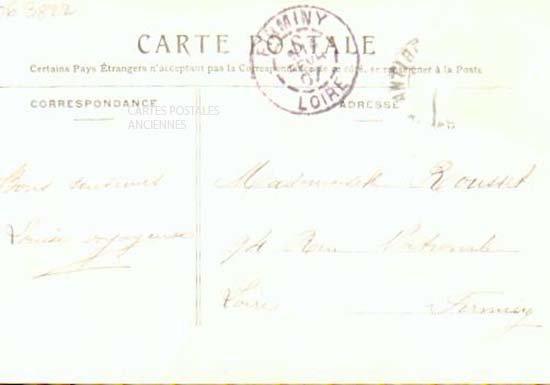 CARTE POSTALE
FIRMINY
LOIRE
Certains Pays Étrangers n'acceptant pas la Correspondance de ce côté, se renseigner à la Poste
CORRESPONDANCE
ADRESSE
CARTES POSTALES
ANCIENNES
Bons souvenirs
Louise
Mademoiselle Rousset
Rue Nationale
Loire Firminy